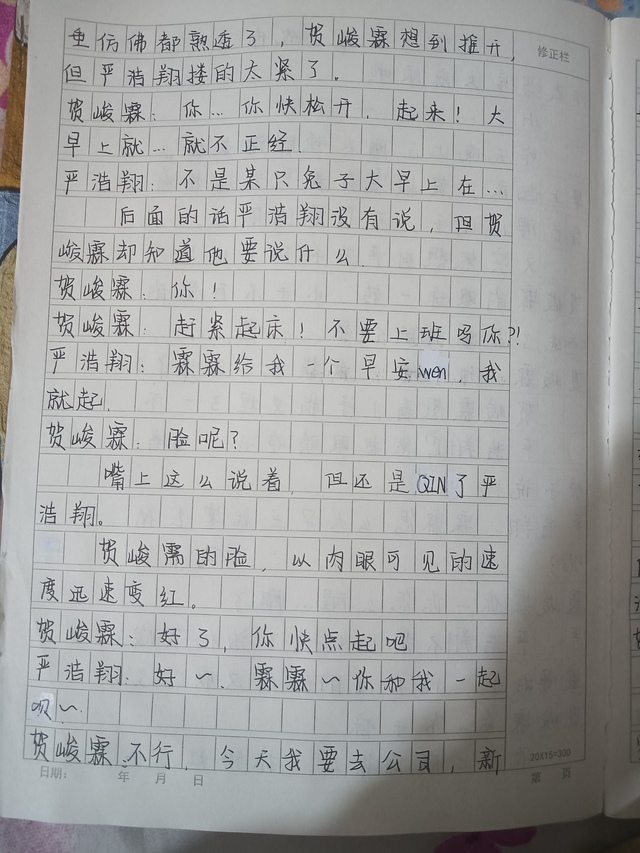 重仿佛都熟透了，贺峻霖想到推开，
修正栏
但严浩翔搂的太紧了。
贺峻霖：你…你快松开，起来！大
早上就…就不正经.
严浩翔：不是某只兔子大早上在…
后面的话严浩翔没有说，但贺
峻霖却知道他要说什么.
贺峻霖：你！
贺峻霖：赶紧起床！不要上班吗你?!
严浩翔：霖霖给我一个早安wen，我
就起.
贺峻霖：脸呢？
嘴上这么说着，但还是QIN了严
浩翔。
贺峻霖的脸，以肉眼可见的速
度迅速变红。
贺峻霖：好了，你快点起吧
严浩翔：好～、霖霖～你和我一起
呗～
贺峻霖：不行，今天我要去公司，新
20X15=300
日期： 年 月 日 第 页